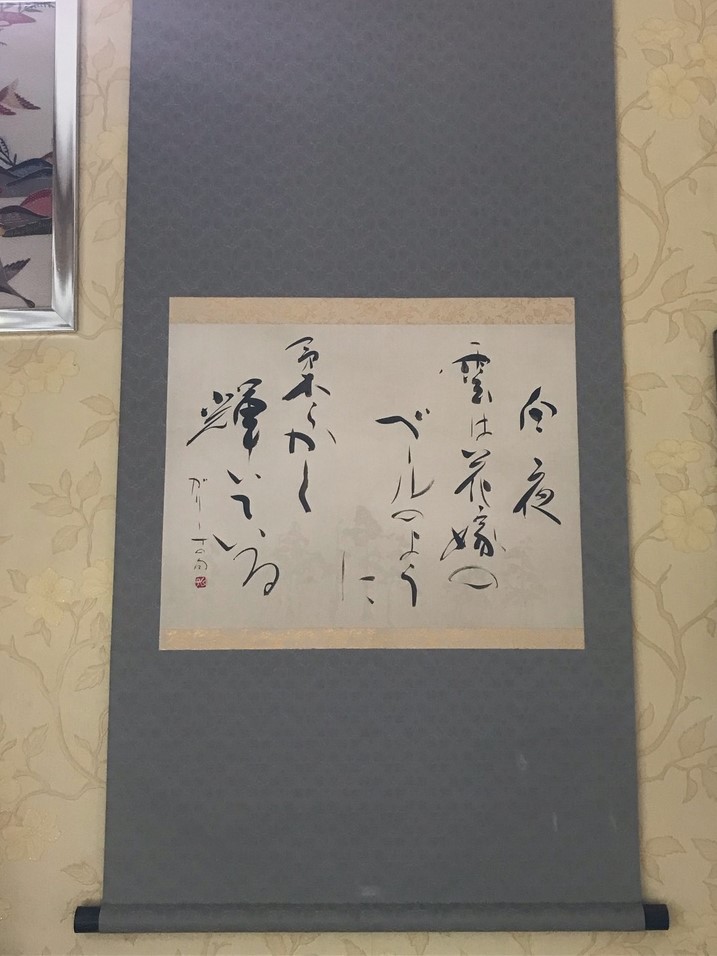 白夜
雲は花嫁の
ベールのよう
に
柔らかく
輝いている
ガリー